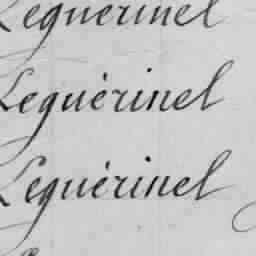 Leguérinel
Leguérinel
Leguérinel